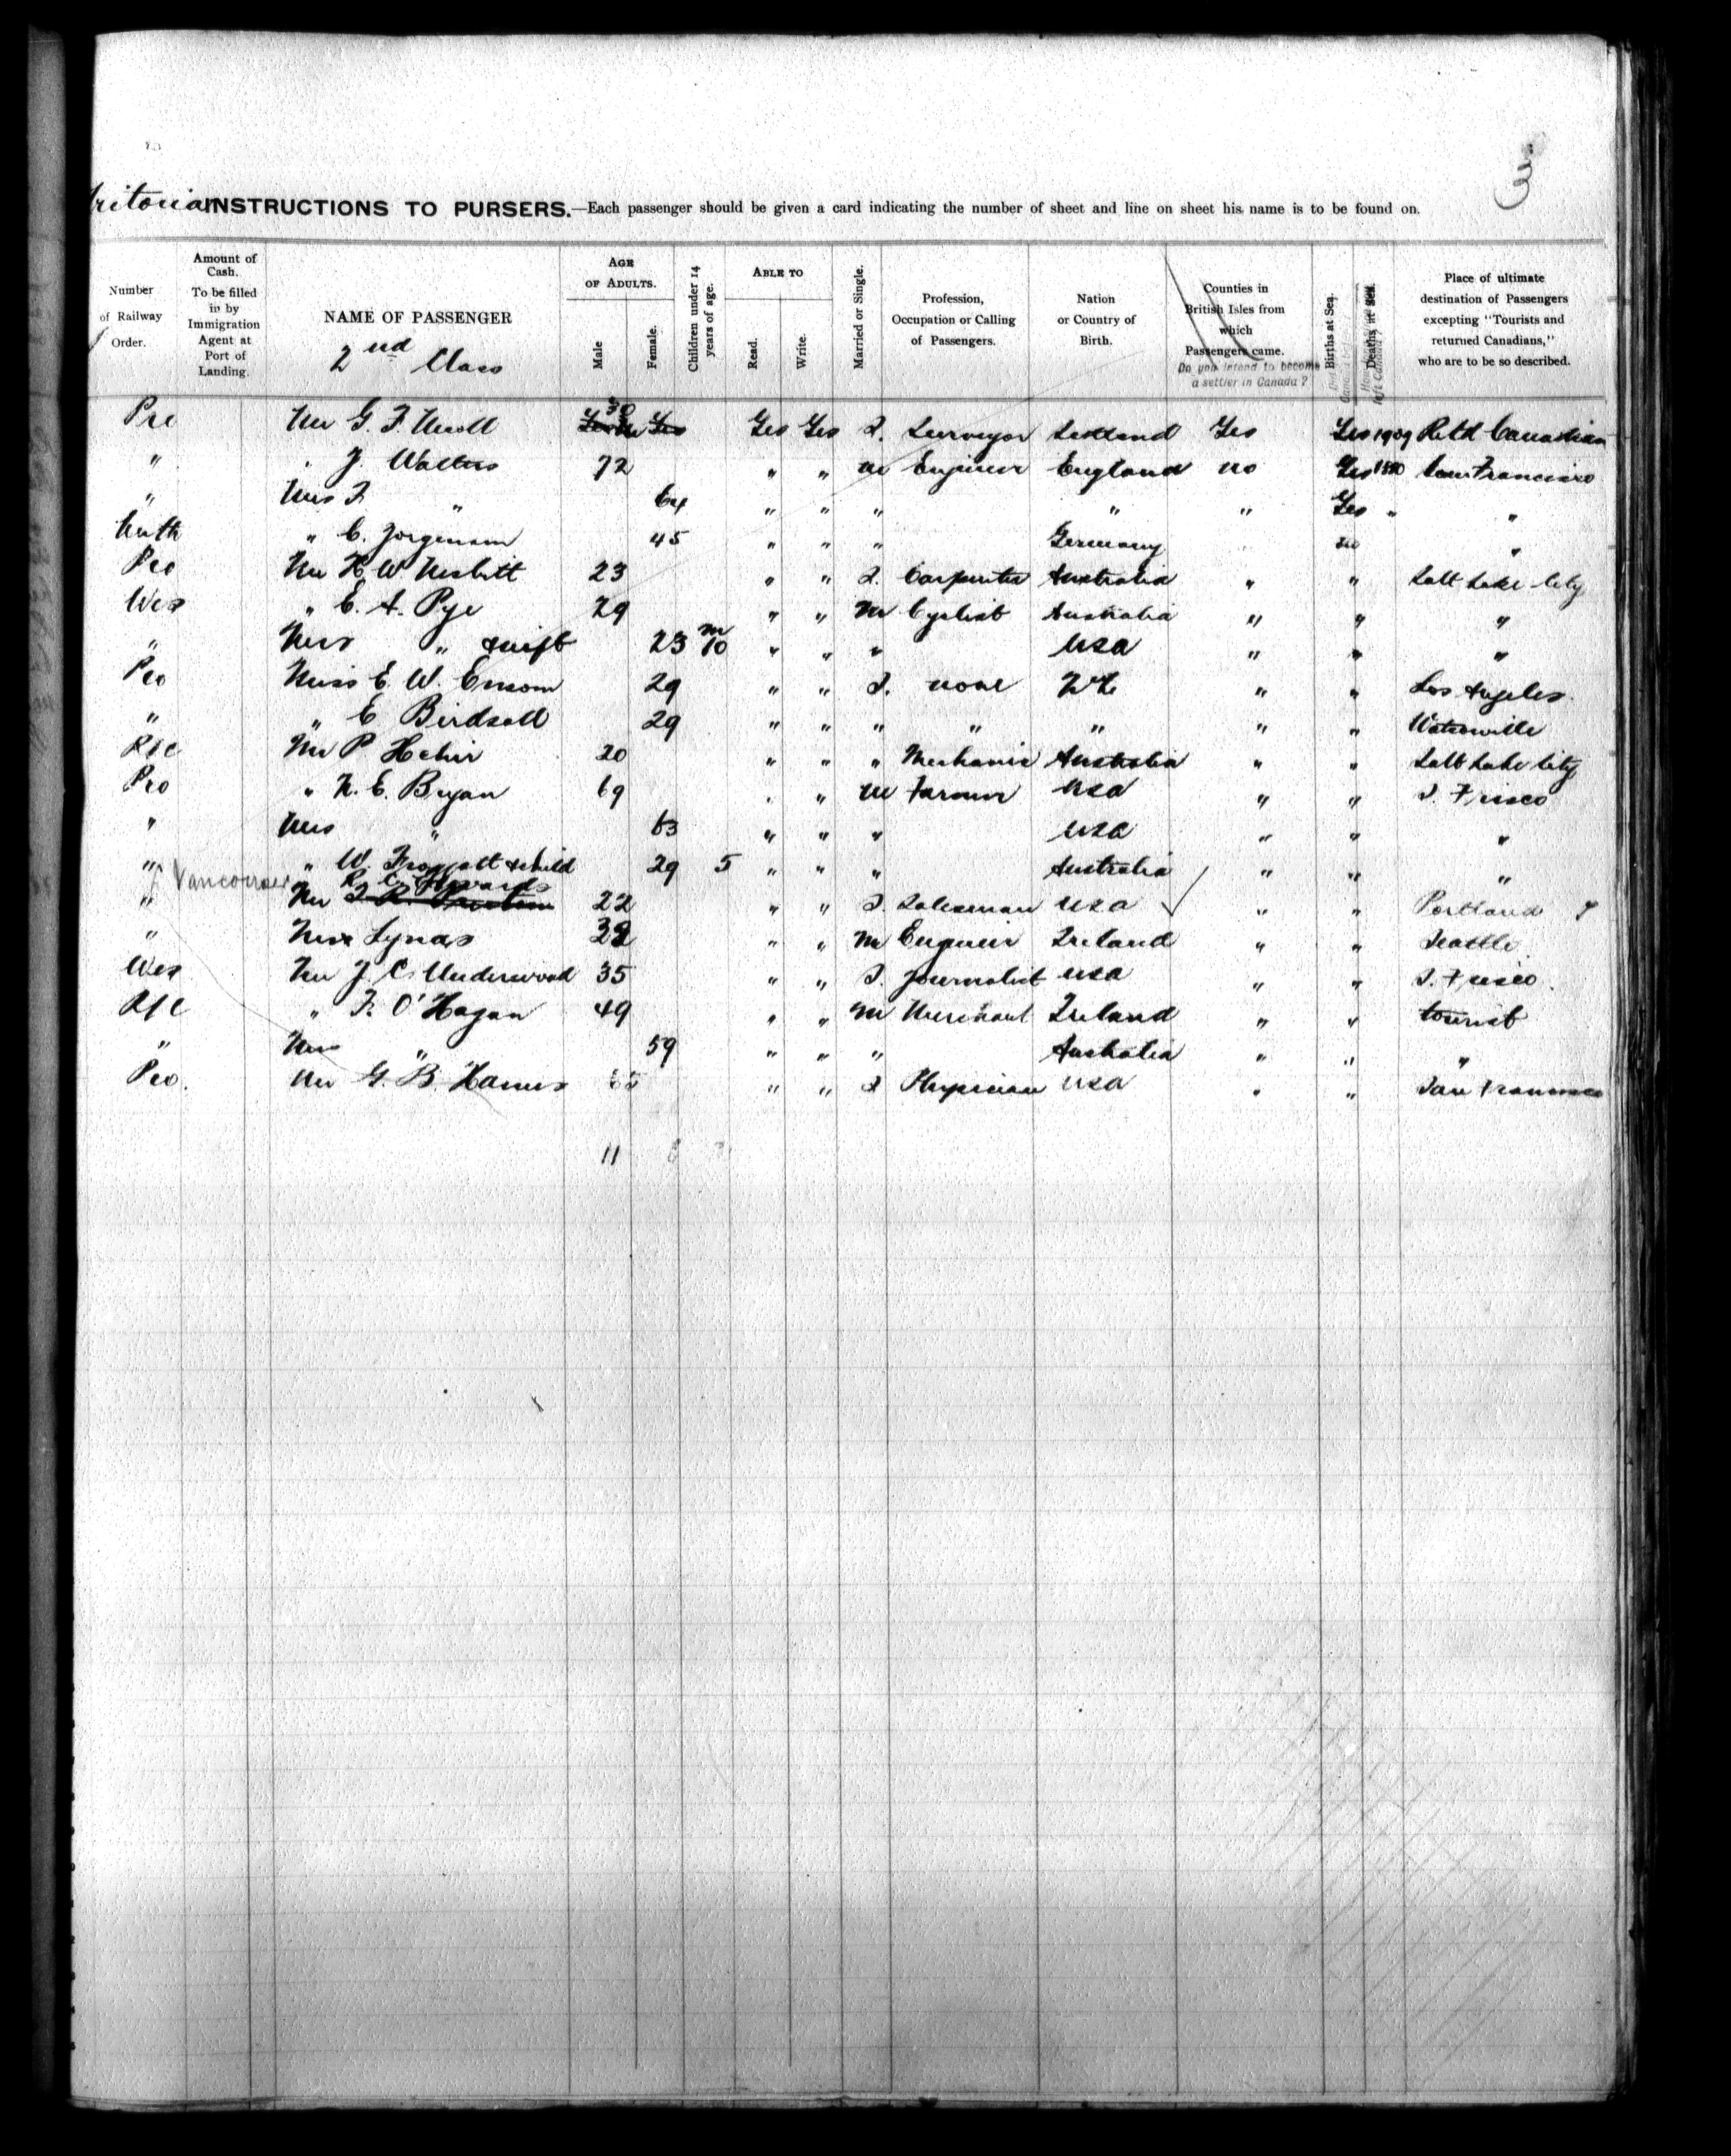 3
INSTRUCTIONS TO PURSERS.—Each passenger should be given a card indicating the number of sheet and line on sheet his name is to be found on.
Number of Railway Order.
Amount of Cash. To be filled in by Immigration Agent at Port of Landing.
NAME OF PASSENGER
2nd Class
AGE OF ADULTS.
Male
Female.
Children under 14 years of age.
ABLE TO
Read.
Write.
Married or Single.
Profession, Occupation or Calling of Passengers.
Nation or Country of Birth.
Counties in British Isles from which Passengers came.
Do you intend to become a settler in Canada?
Births at Sea.
Deaths at Sea.
Place of ultimate destination of Passengers excepting "Tourists and returned Canadians," who are to be so described.
Mr G. F. 30 Yes Yes S. Surveyor Scotland Yes Yes 1909 Retd Canadian
" J. Walters 72 " " m Engineer England no Yes San Francisco
" Mrs F. " 64 " " " " " Yes " "
" C. Jorgensen 45 " " " Germany no "
Mr H. W. Nesbitt 23 " " S. Carpenter Australia " " Salt Lake City
Wes " E. A. Pye 29 " " M Cyclist Australia " " "
" Mrs " & inft 23 10 m " " " USA " " "
Miss E. W. Ensom 29 " " S. none NZ " " Los Angeles.
" " E Birdsall 29 " " " " " " " Watsonville
Mr P. Hehir 20 " " " Mechanic Australia " " Salt Lake City
" N. E. Bryan 69 " m Farmer USA " " S. Frisco
" Mrs " 63 " " " USA " " "
" " W. Froggatt & child 29 5 " " " Australia " " "
Vancouver R. C. Edwards
" Mr 22 " " S. Salesman USA " " Portland
" Lynas " " M Engineer Ireland " " Seattle
Wes Mr J. C. Underwood 35 " " S. Journalist USA " " S. Frisco.
" F. O'Hagan 49 " " M Merchant Ireland " " tourist
" Mrs " 59 " " " Australia " " "
Mr G. B. " " S Physician USA " " San Francisco
11